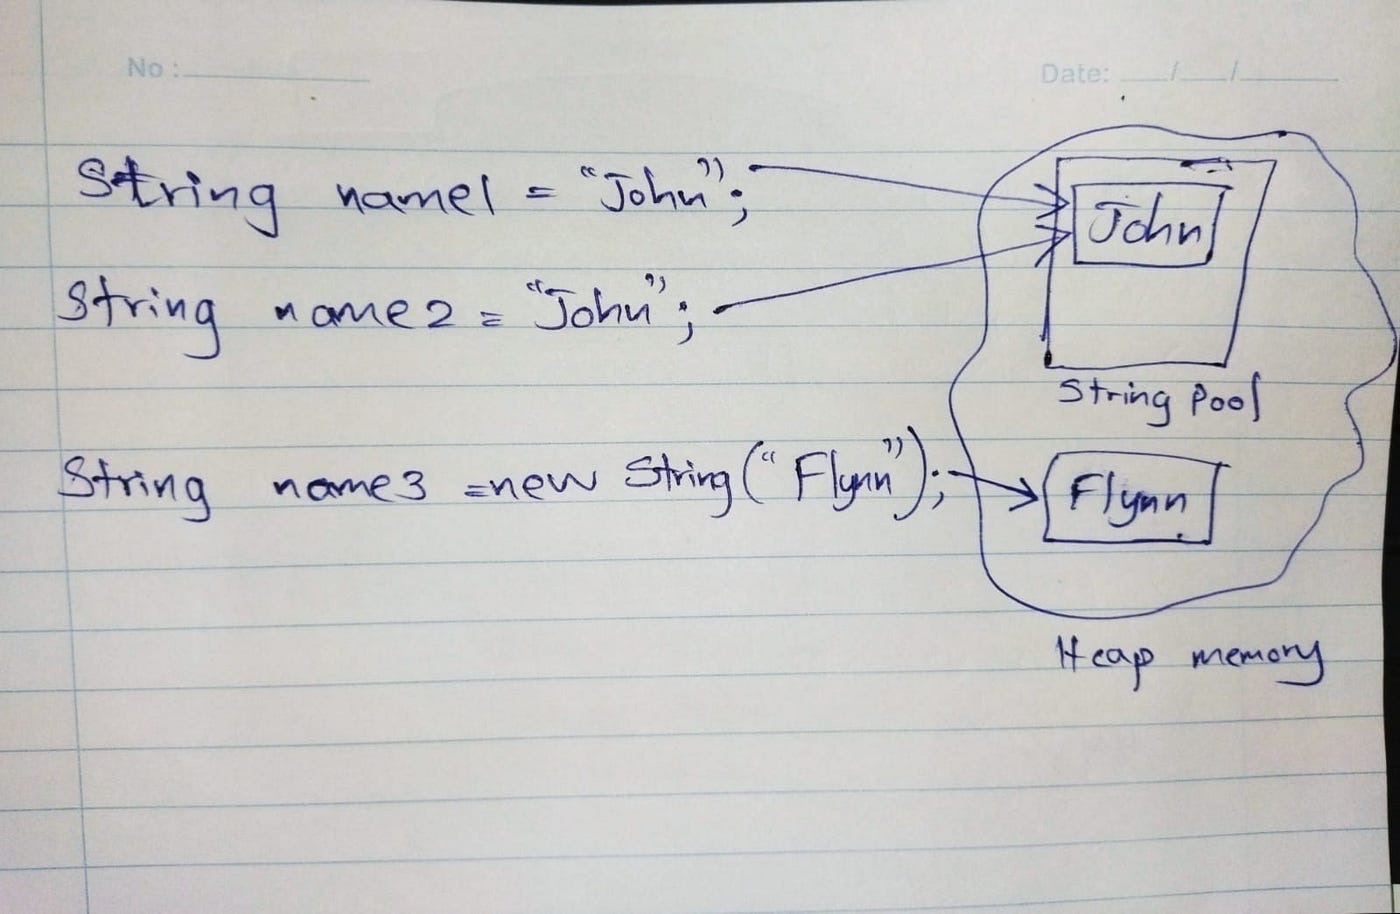 No :
Date: / /
String name1 = "John";
John
String name2 = "John";
String Pool
String name3 =new String("Flynn");
Flynn
Heap memory